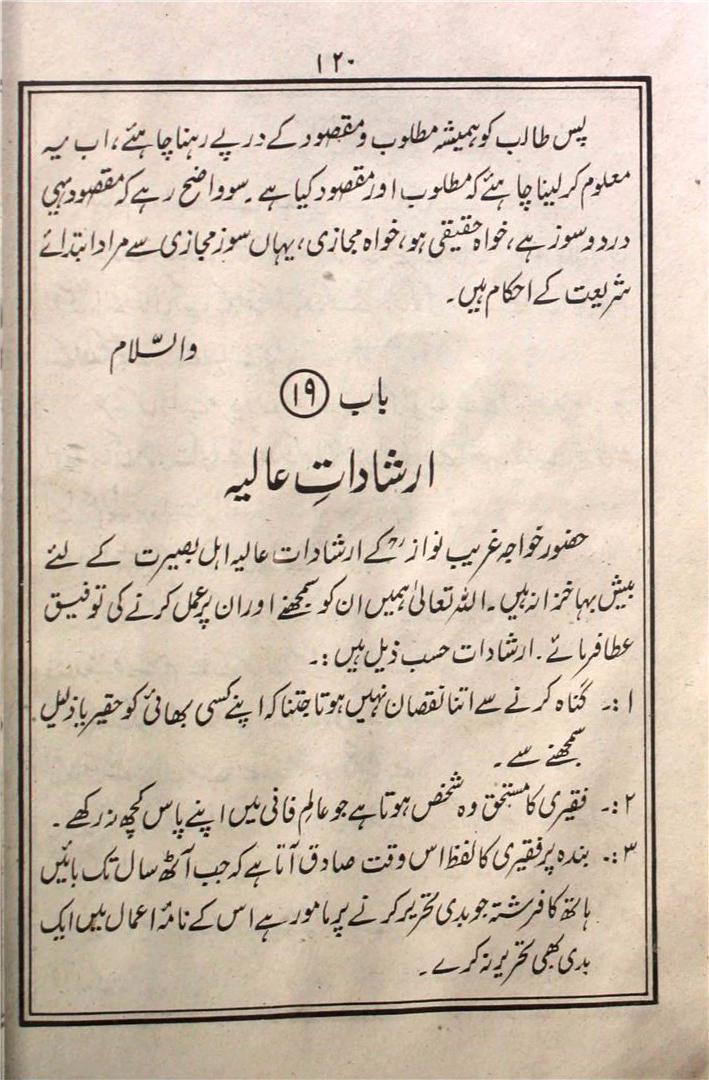 ۱۲۰
پس طالب کو ہمیشہ مطلوب و مقصود کے درپے رہنا چاہئے، اب یہ
معلوم کر لینا چاہئے کہ مطلوب اور مقصود کیا ہے۔ سو واضح رہے کہ مقصود یہی
درد و سوز ہے، خواہ حقیقی ہو، خواہ مجازی، یہاں سوز مجازی سے مراد ابتدائے
شریعت کے احکام ہیں۔
والسّلام
باب ۱۹
ارشاداتِ عالیہ
حضور خواجہ غریب نوازؒ کے ارشادات عالیہ اہل بصیرت کے لئے
بیش بہا خزانہ ہیں۔ اللہ تعالیٰ ہمیں ان کو سمجھنے اور ان پر عمل کرنے کی توفیق
عطا فرمائے۔ ارشادات حسب ذیل ہیں:۔
۱:۔ گناہ کرنے سے اتنا نقصان نہیں ہوتا جتنا کہ اپنے کسی بھائی کو حقیر یا ذلیل
سمجھنے سے۔
۲:۔ فقیری کا مستحق وہ شخص ہوتا ہے جو عالم فانی میں اپنے پاس کچھ نہ رکھے۔
۳:۔ بندہ پر فقیری کا لفظ اس وقت صادق آتا ہے کہ جب آٹھ سال تک بائیں
ہاتھ کا فرشتہ جو بدی تحریر کرنے پر مامور ہے اس کے نامۂ اعمال میں ایک
بدی بھی تحریر نہ کرے۔